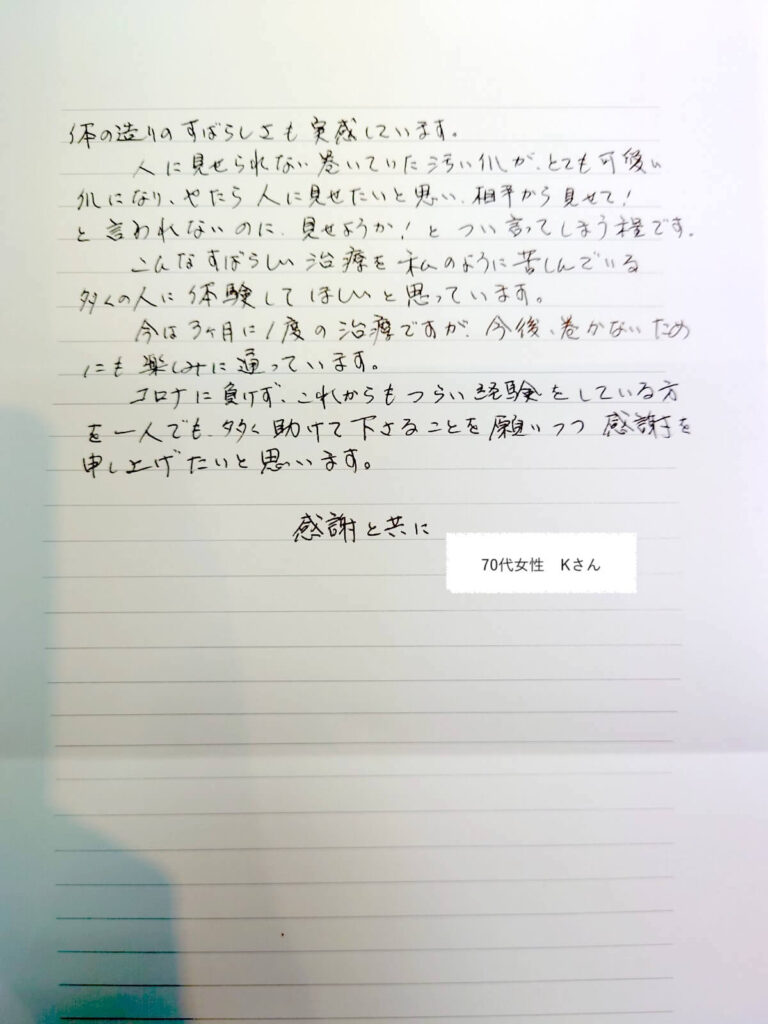 体の造りのすばらしさも実感しています。
人に見せられない巻いていた汚い爪が、とても可愛い
爪になり、やたら人に見せたいと思い、相手から見せて！
と言われないのに、見せようか！とつい言ってしまう程です。
こんなすばらしい治療を私のように苦しんでいる
多くの人に体験してほしいと思っています。
今は3ヶ月に1度の治療ですが、今後、巻かないため
にも楽しみに通っています。
コロナに負けず、これからもつらい経験をしている方
を一人でも、多く助けて下さることを願いつつ感謝を
申し上げたいと思います。
感謝と共に
70代女性 Kさん